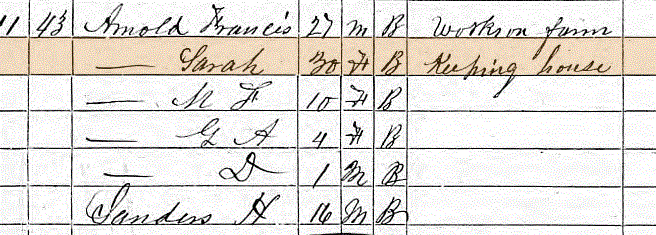 11 43 Arnold Francis 27 M B Works on farm
— Sarah 30 F B Keeping house
— M F 10 F B
— G A 4 F B
— D 1 M B
Sanders H 16 M B